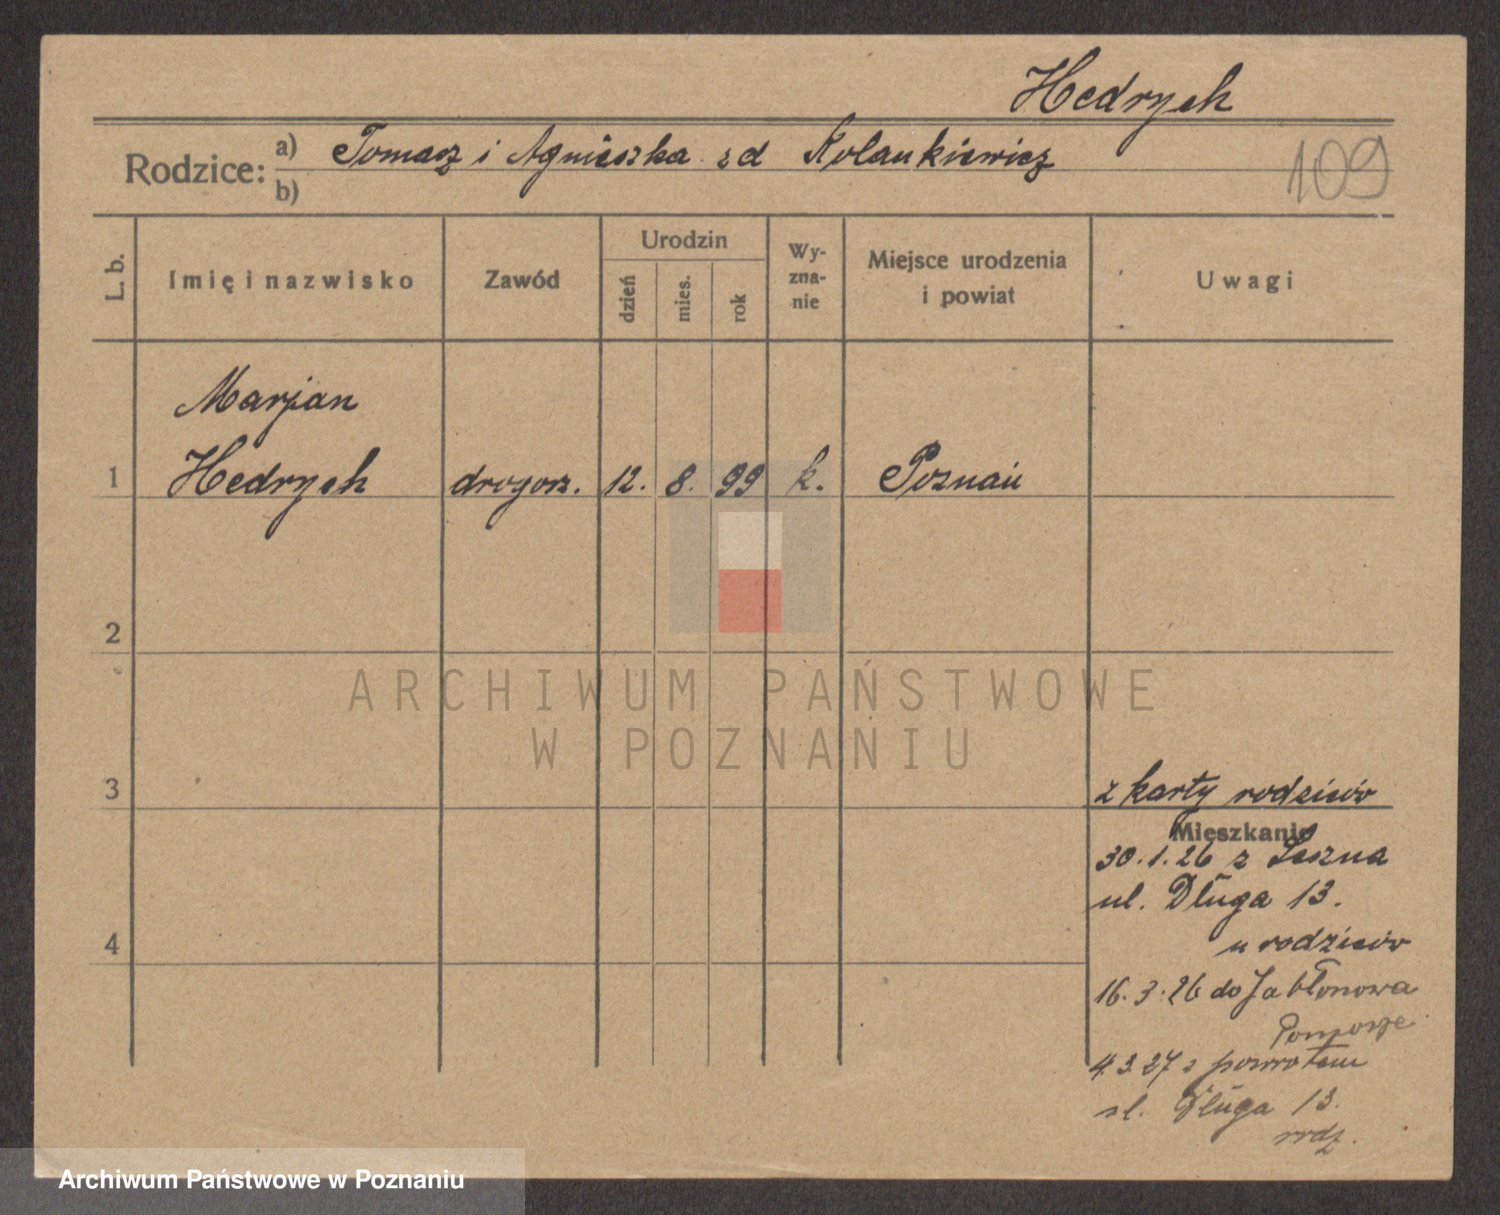 Hedrych
109
Rodzice: a) Tomasz i Agnieszka z d Kolankiewicz
b)
L. b.
Imię i nazwisko
Zawód
Urodzin
dzień
mies.
rok
Wy-
zna-
nie
Miejsce urodzenia
i powiat
Uwagi
Marjan
1 Hedrych drogerz. 12. 8. 99 k. Poznań
2
ARCHIWUM PAŃSTWOWE
W POZNANIU
3
z karty rodziców
Mieszkanie
30.1.26 z Leszna
ul. Długa 13.
4
u rodziców
16.3.26 do Jabłonowa
Pomorze
4.3.27 z powrotem
ul. Długa 13.
rodz.
Archiwum Państwowe w Poznaniu